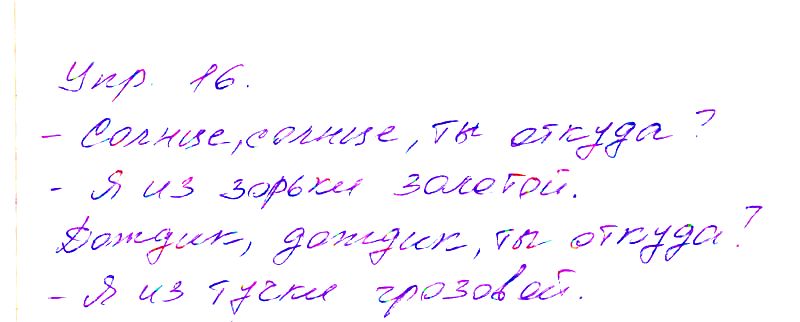 Упр. 16.
- Солнце, солнце, ты откуда?
- Я из зорьки золотой.
Дождик, дождик, ты откуда?
- Я из тучки грозовой.